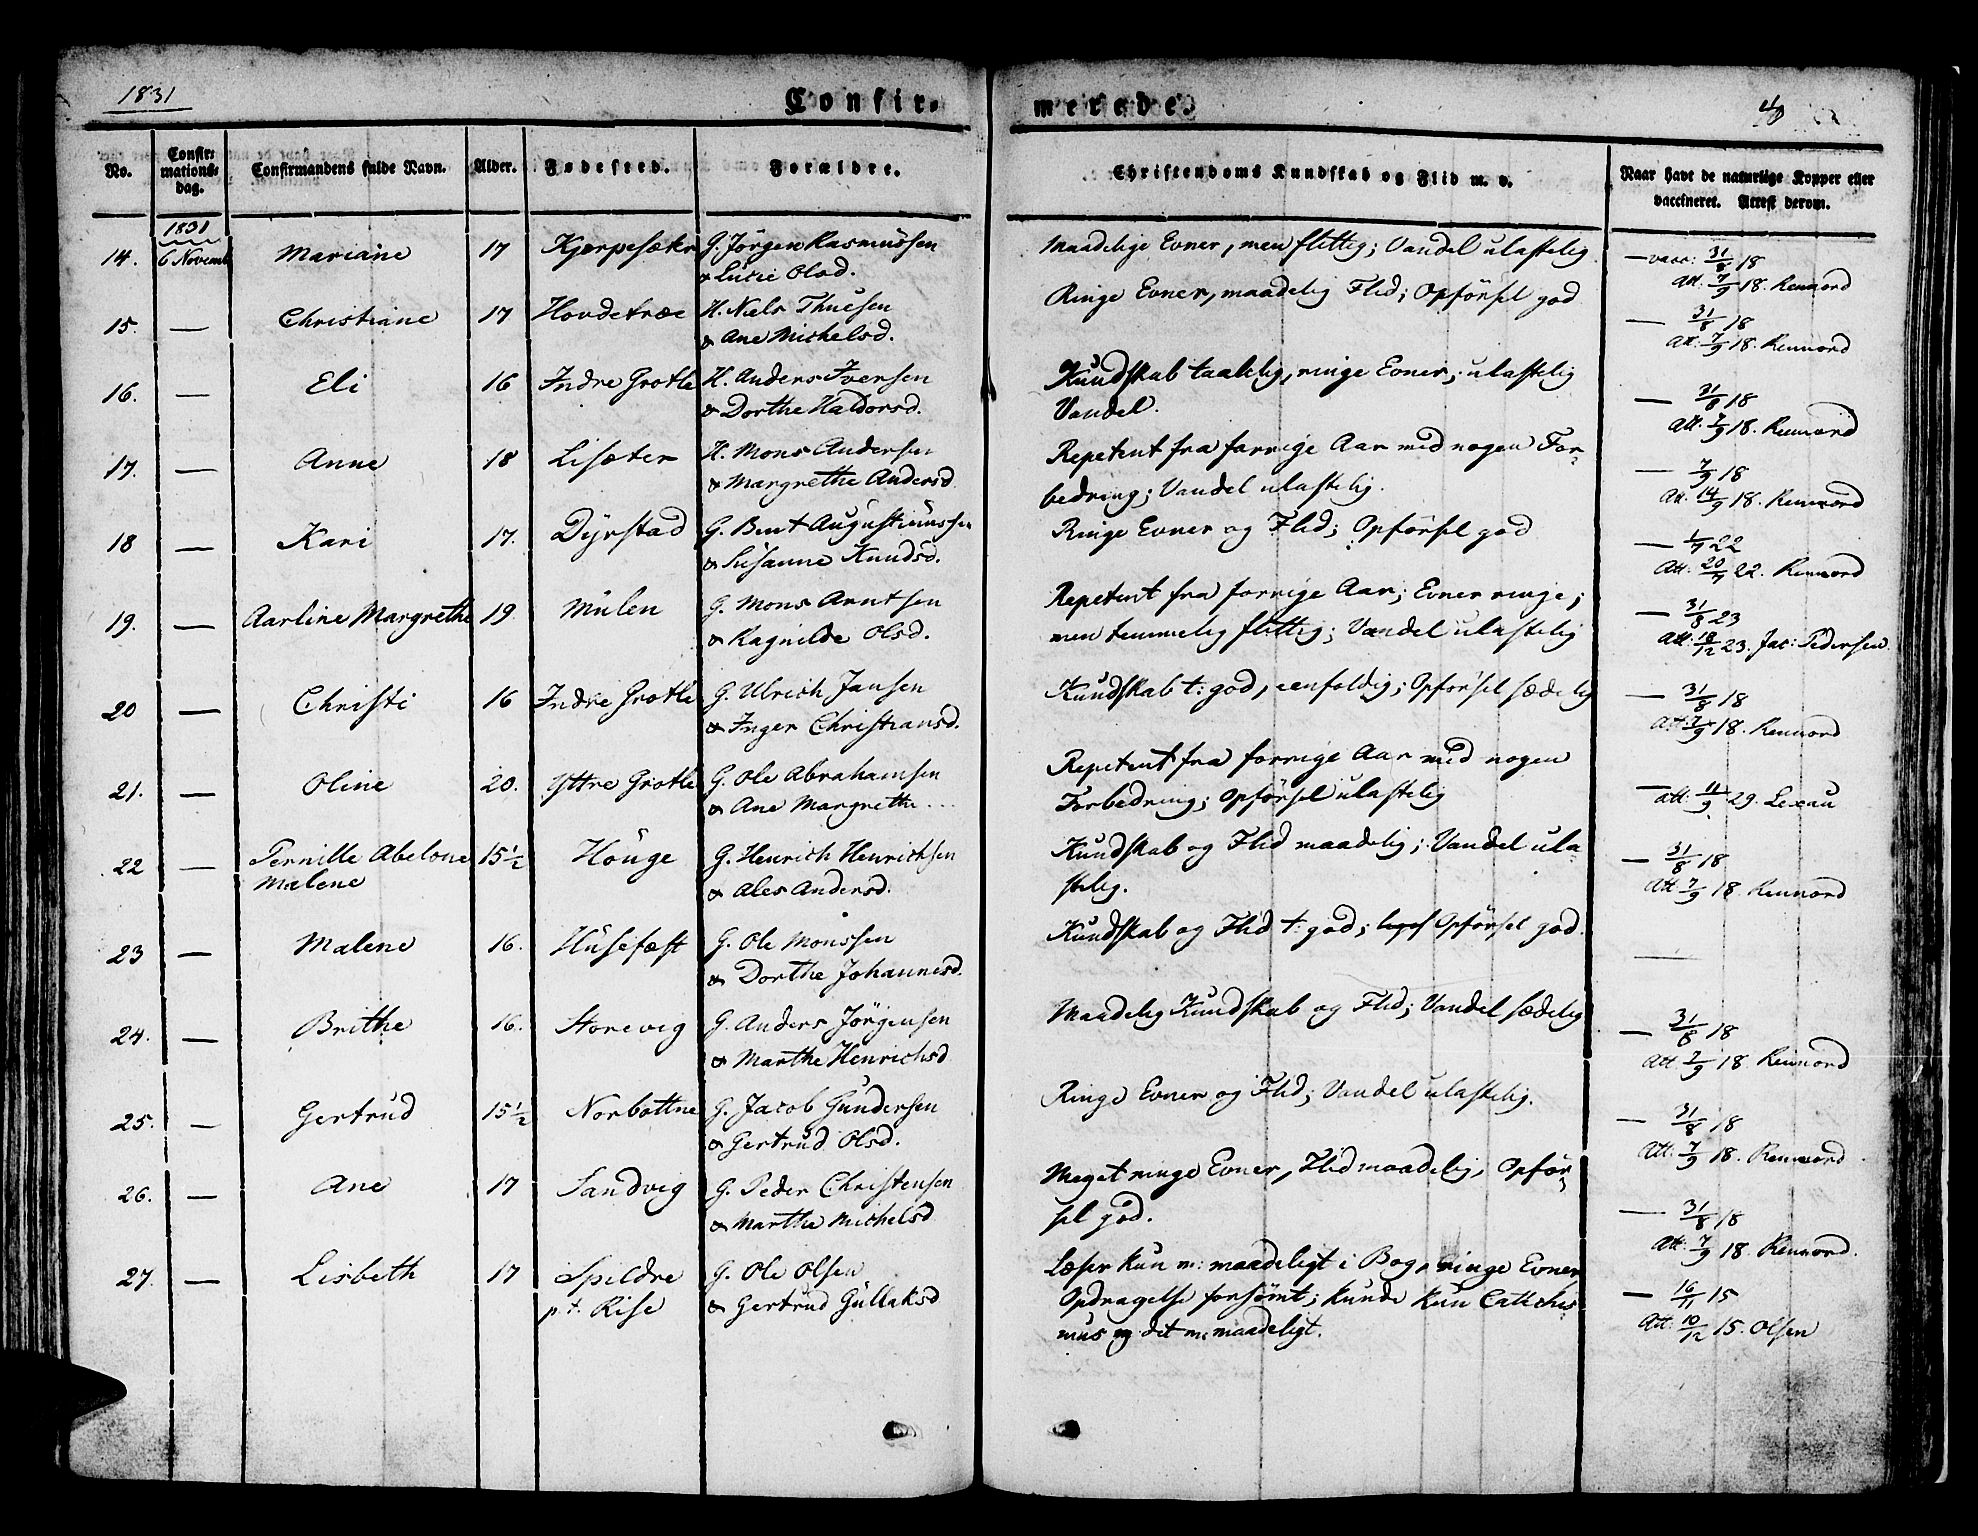 1831
Confir-
merede.
No.
Confir-
mations-
dag.
Confirmandens fulde Navn.
Alder.
Fødested.
Forældre.
Christendoms Kundskab og Flid m. v.
Naar havt de naturlige Kopper eller
vaccineret. Attest derom.
1831
14. 6 Novemb Mariane 17 Kjerpesætr G. Jörgen Rasmussen
& Lucie Olsd.
Maadelige Evner, men flittig; Vandel ulastelig
— vacc: 31/8 18
Att. 7/9 18. Rennord
15. — Christiane 17 Hovdetræe H. Niels Thuesen
& Ane Michelsd.
Ringe Evner, maadelig Flid; Opförsel god
— 31/8 18
Att. 7/9 18. Rennord
16. — Eli 16 Indre Grotle H. Anders Iversen
& Dorthe Haldorsd.
Kundskab taalelig, ringe Evner; ulastelig
Vandel.
— 31/8 18
Att. 7/9 18. Rennord
17. — Anne 18 Lisæter H. Mons Andersen
& Margrethe Andersd.
Repetent fra forrige Aar med nogen For-
bedring; Vandel ulastelig.
— 7/9 18
Att. 14/9 18. Rennord
18 — Kari 17. Dyrstad G. Bent Augustinussen
& Susanne Knudsd.
Ringe Evner og Flid; Opförsel god
— 1/7 22
Att: 20/7 22. Rennord
19. — Aarline Margrethe 19. Mulen G. Mons Arntsen
& Ragnilde Olsd.
Repetent fra forrige Aar; Evner ringe;
men temmelig flittig; Vandel ulastelig
— 31/8 23
Att: 18/12 23. Jac: Pedersen.
20 — Christi 16 Indre Grotle G. Ulrich Jansen
& Inger Christiansd.
Kundskab t: god, eenfoldig; Opförsel sædelig
— 31/8 18
Att 7/9 18. Rennord
21. — Oline 20. Yttre Grotle G. Ole Abrahamsen
& Ane Margrethe ...
Repetent fra forrige Aar med nogen
Forbedring; Opförsel ulastelig
— att: 11/9 29. Lexau
22 — Pernille Abelone 15½ Höuge G. Henrich Henrichsen
Malene & Ales Andersd.
Kundskab og Flid maadelig; Vandel ula-
stelig.
— 31/8 18
Att 7/9 18. Rennord
23 — Malene 16. Husefæst G. Ole Monssen
& Dorthe Johannesd.
Kundskab og Flid t: god; Opförsel god.
—
24. — Brithe 16. Storevig G. Anders Jörgensen
& Marthe Henrichsd
Maadelig Kundskab og Flid; Vandel sædelig
— 31/8 18
Att. 7/9 18. Rennord
25. — Gertrud 15½ Norbottne G. Jacob Gundersen
& Gertrud Olsd.
Ringe Evner og Flid; Vandel ulastelig.
— 31/8 18
Att. 7/9 18. Rennord
26. — Ane 17 Sandvig G. Peder Christensen
& Marthe Michelsd
Meget ringe Evner, Flid maadelig, Opför-
sel god.
— 31/8 18
Att. 7/9 18. Rennord.
27. — Lisbeth 17 Spildre G. Ole Olsen
pt. Rise & Gertrud Gullaksd
Læser kun m: maadeligt i Bog, ringe Evner
Opdragelse forsömt; kunde kun Catechis
mus og det m: maadeligt.
— 16/11 15
Att: 10/12 15. Olsen